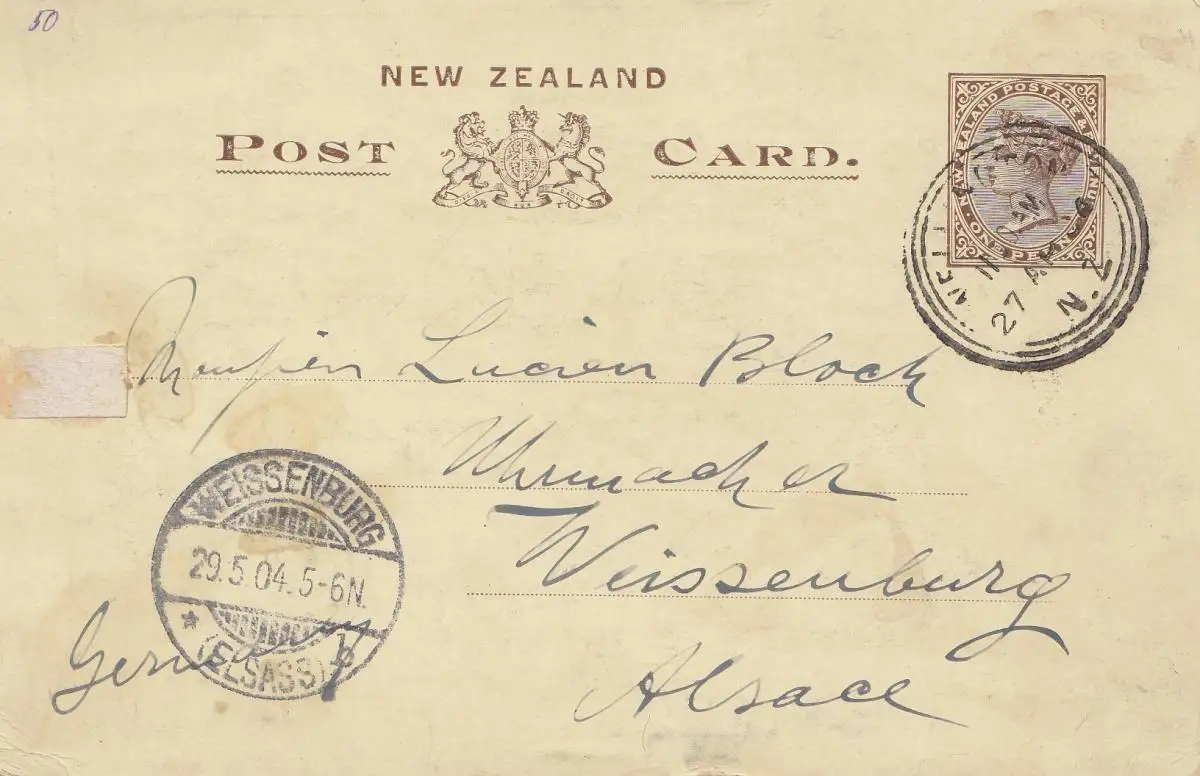 50
NEW ZEALAND
POST CARD.
NEW ZEALAND POSTAGE & REVENUE
ONE PENNY
WELLINGTON
11
27 AP
N.Z
Monsieur Lucien Bloch
Uhrmacher
Weissenburg
Alsace
Germany
WEISSENBURG
29.5.04.5-6N.
* (ELSASS) b